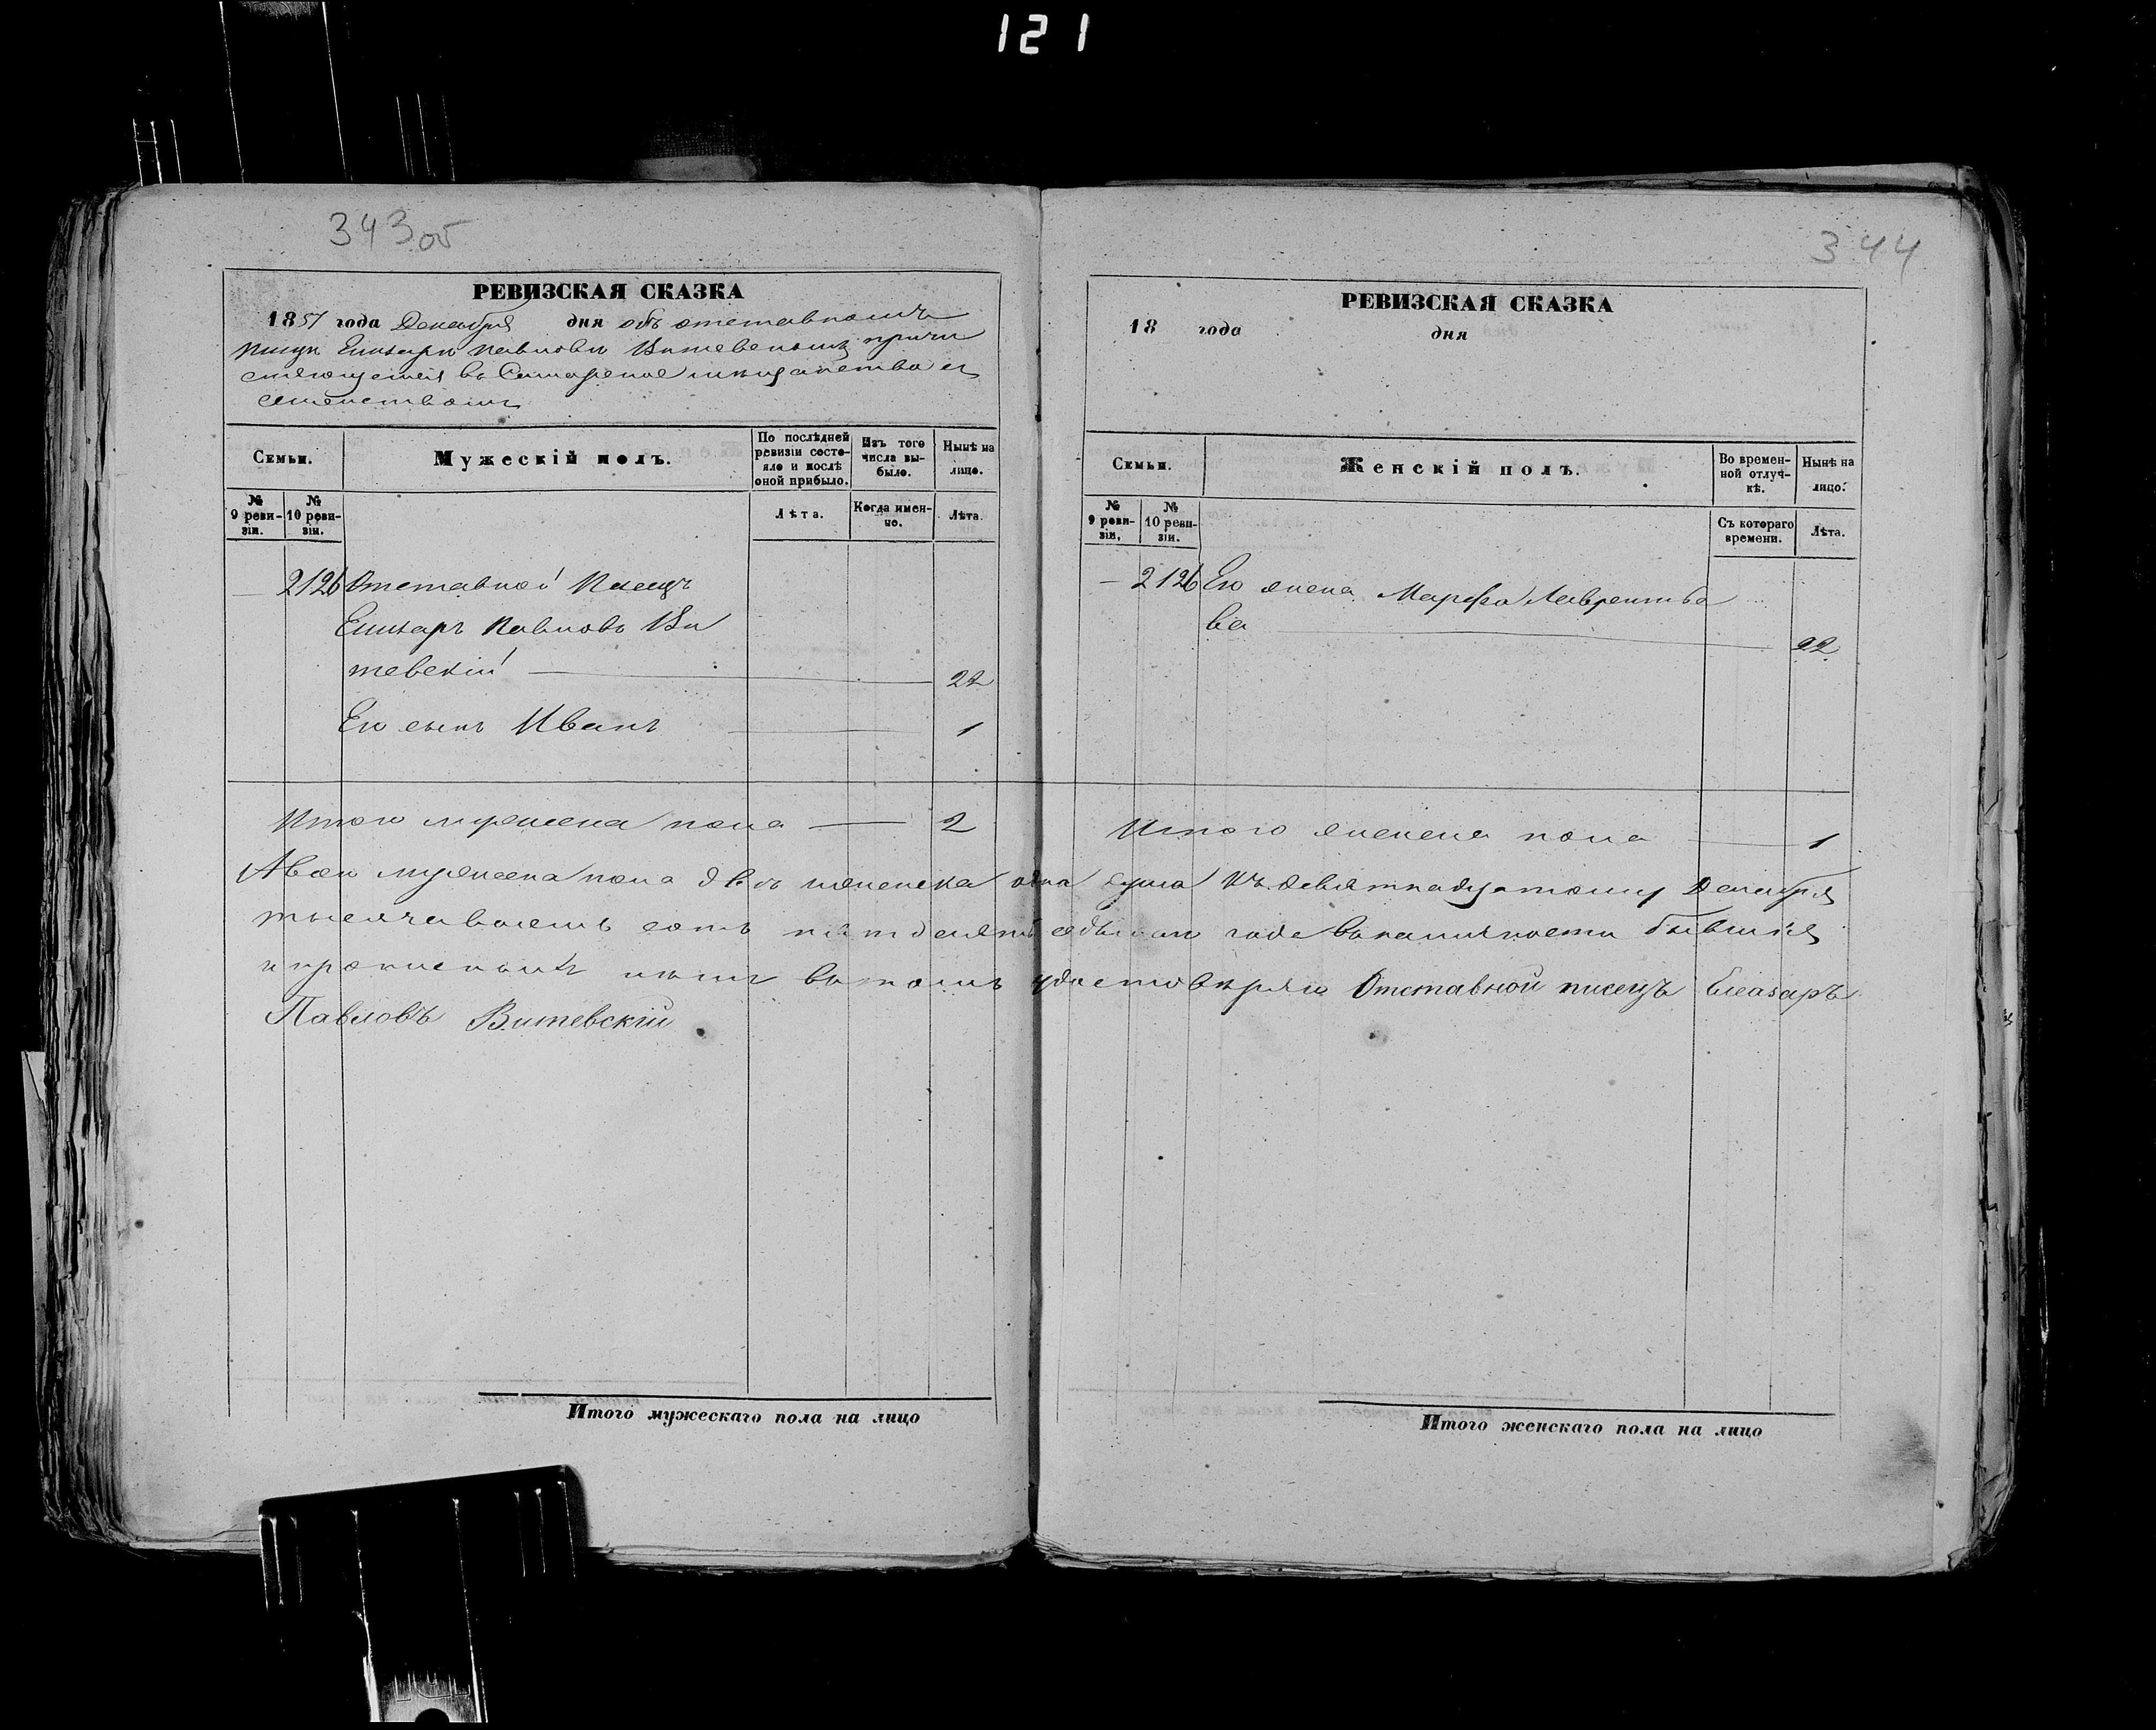 121
343 об
РЕВИЗСКАЯ СКАЗКА
1857 года Декабря дня объ отставномъ
писце Елизаре Павлове Витевскомъ причи
сляющемся въ Самарское мещанство съ
семействомъ
Семьи.
Мужескій полъ.
По послѣдней ревизіи состояло и послѣ оной прибыло.
Изъ того числа выбыло.
Нынѣ на лицо.
№ 9 ревизіи.
№ 10 ревизіи.
Лѣта.
Когда именно.
Лѣта.
— 2126 Отставной Писецъ
Елизаръ Павловъ Ви
тевскій — 22
Его сынъ Иванъ — 1
Итого мужеска пола — 2
344
РЕВИЗСКАЯ СКАЗКА
18 года дня
Семьи.
Женскій полъ.
Во временной отлучкѣ.
Нынѣ на лицо.
№ 9 ревизіи.
№ 10 ревизіи.
Съ котораго времени.
Лѣта.
— 2126 Его жена Марфа Лаврентье
ва — 22
Итого женска пола — 1
А всего мужеска пола двѣ женска одна душа къ девятнадцатому Декабря
тысяча восемь сотъ пятдесятъ седьмого года въ наличности бывшія
и прописаны въ томъ удостовѣряю Отставной писецъ Елеазаръ
Павловъ Витевскій.
Итого мужескаго пола на лицо
Итого женскаго пола на лицо